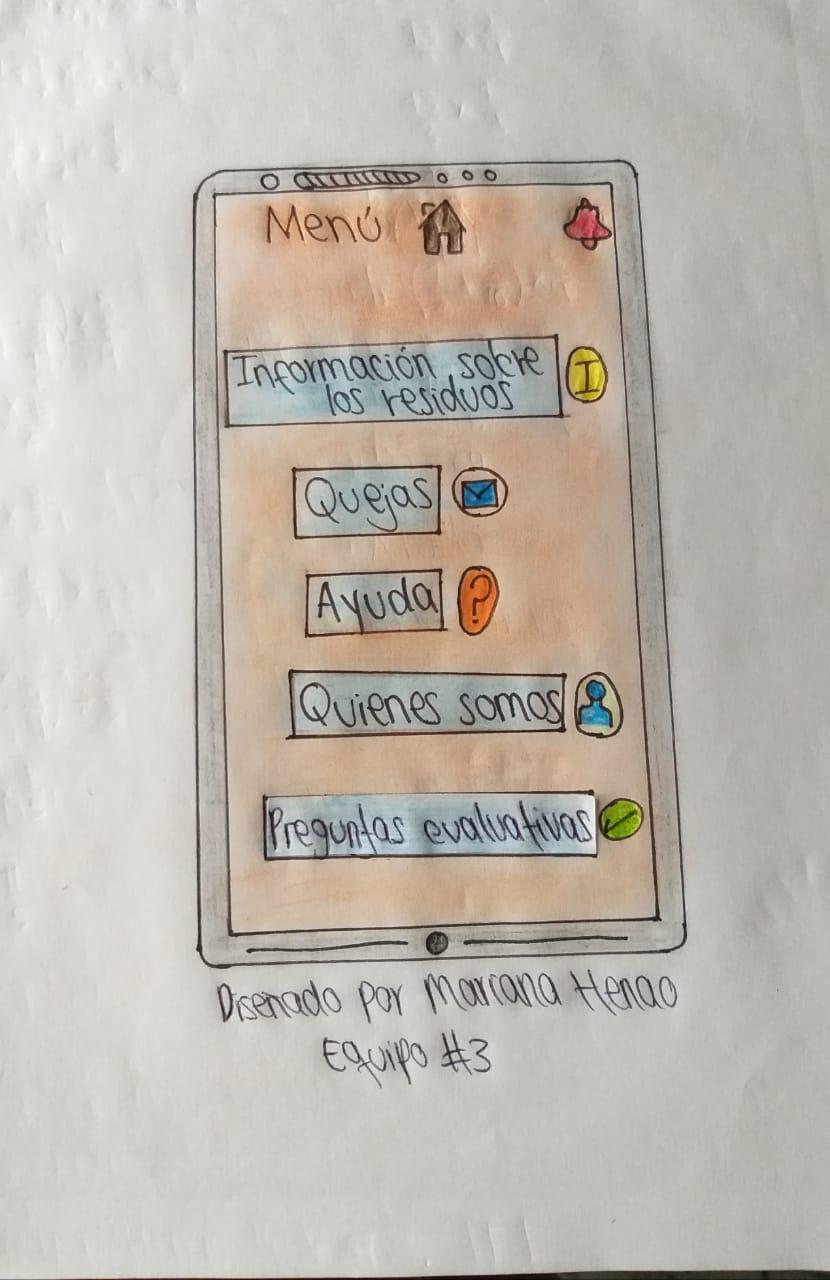 Menú
Información sobre
los residuos
I
Quejas
Ayuda
?
Quienes somos
Preguntas evaluativas
Disenado por Mariana Henao
Equipo #3